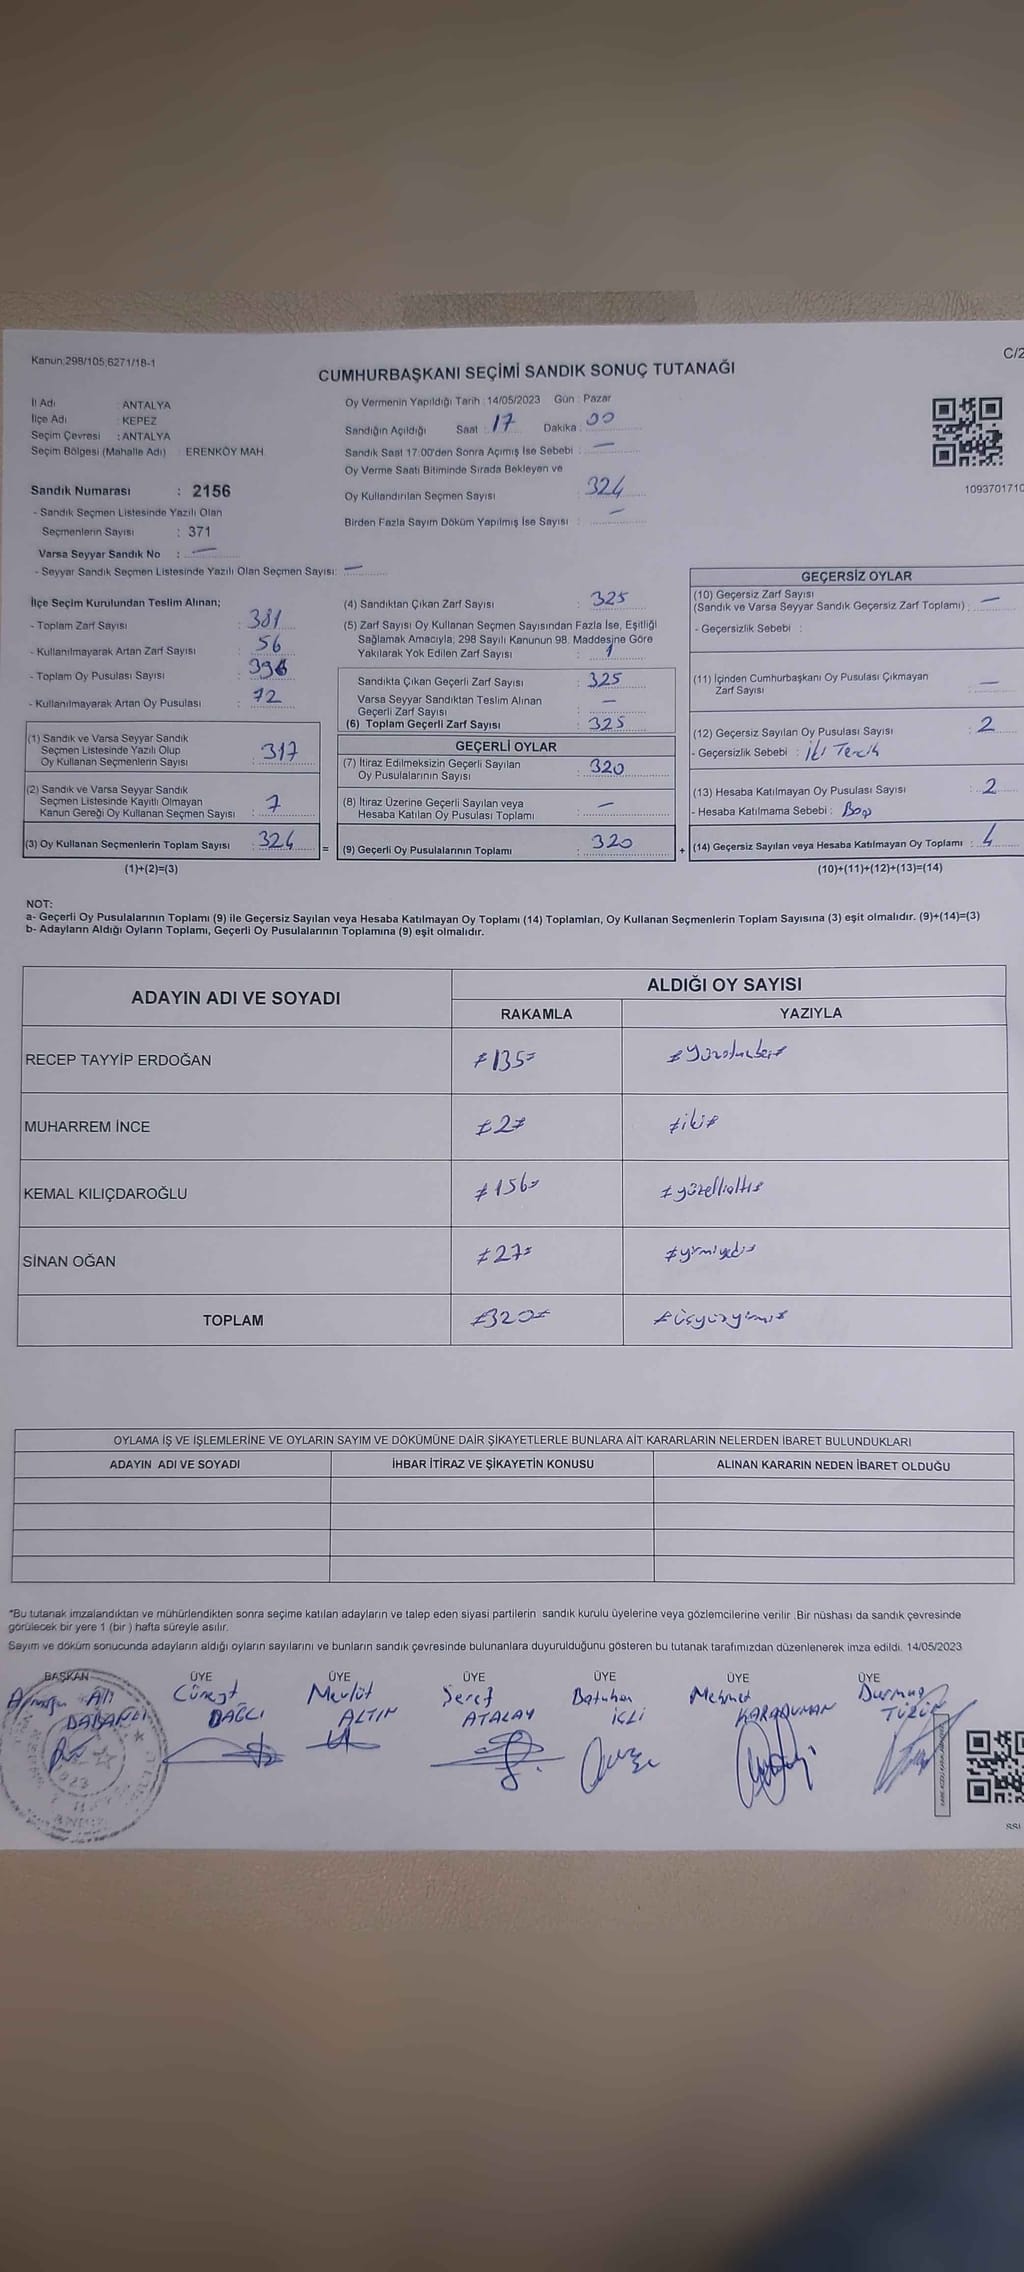 Kanun:298/105,6271/18-1
C/2
CUMHURBAŞKANI SEÇİMİ SANDIK SONUÇ TUTANAĞI
İl Adı : ANTALYA
İlçe Adı : KEPEZ
Seçim Çevresi : ANTALYA
Seçim Bölgesi (Mahalle Adı) : ERENKÖY MAH.
Sandık Numarası : 2156
- Sandık Seçmen Listesinde Yazılı Olan
Seçmenlerin Sayısı : 371
Varsa Seyyar Sandık No : —
- Seyyar Sandık Seçmen Listesinde Yazılı Olan Seçmen Sayısı: —
Oy Vermenin Yapıldığı Tarih : 14/05/2023 Gün : Pazar
Sandığın Açıldığı Saat : 17 Dakika : 00
Sandık Saat 17:00'den Sonra Açımış İse Sebebi : —
Oy Verme Saati Bitiminde Sırada Bekleyen ve
Oy Kullandırılan Seçmen Sayısı : 324
Birden Fazla Sayım Döküm Yapılmış İse Sayısı : —
1093701710
İlçe Seçim Kurulundan Teslim Alınan;
- Toplam Zarf Sayısı : 381
- Kullanılmayarak Artan Zarf Sayısı : 56
- Toplam Oy Pusulası Sayısı :
- Kullanılmayarak Artan Oy Pusulası : 72
(1) Sandık ve Varsa Seyyar Sandık
Seçmen Listesinde Yazılı Olup
Oy Kullanan Seçmenlerin Sayısı : 317
(2) Sandık ve Varsa Seyyar Sandık
Seçmen Listesinde Kayıtlı Olmayan
Kanun Gereği Oy Kullanan Seçmen Sayısı : 7
(3) Oy Kullanan Seçmenlerin Toplam Sayısı : 324
(1)+(2)=(3)
(4) Sandıktan Çıkan Zarf Sayısı : 325
(5) Zarf Sayısı Oy Kullanan Seçmen Sayısından Fazla İse, Eşitliği
Sağlamak Amacıyla, 298 Sayılı Kanunun 98. Maddesine Göre
Yakılarak Yok Edilen Zarf Sayısı : 1
Sandıkta Çıkan Geçerli Zarf Sayısı : 325
Varsa Seyyar Sandıktan Teslim Alınan
Geçerli Zarf Sayısı : —
(6) Toplam Geçerli Zarf Sayısı : 325
GEÇERLİ OYLAR
(7) İtiraz Edilmeksizin Geçerli Sayılan
Oy Pusulalarının Sayısı : 320
(8) İtiraz Üzerine Geçerli Sayılan veya
Hesaba Katılan Oy Pusulası Toplamı : —
= (9) Geçerli Oy Pusulalarının Toplamı : 320
GEÇERSİZ OYLAR
(10) Geçersiz Zarf Sayısı
(Sandık ve Varsa Seyyar Sandık Geçersiz Zarf Toplamı) : —
- Geçersizlik Sebebi :
(11) İçinden Cumhurbaşkanı Oy Pusulası Çıkmayan
Zarf Sayısı : —
(12) Geçersiz Sayılan Oy Pusulası Sayısı : 2
- Geçersizlik Sebebi : İki Tercih
(13) Hesaba Katılmayan Oy Pusulası Sayısı : 2
- Hesaba Katılmama Sebebi : Boş
+ (14) Geçersiz Sayılan veya Hesaba Katılmayan Oy Toplamı : 4
(10)+(11)+(12)+(13)=(14)
NOT:
a- Geçerli Oy Pusulalarının Toplamı (9) ile Geçersiz Sayılan veya Hesaba Katılmayan Oy Toplamı (14) Toplamları, Oy Kullanan Seçmenlerin Toplam Sayısına (3) eşit olmalıdır. (9)+(14)=(3)
b- Adayların Aldığı Oyların Toplamı, Geçerli Oy Pusulalarının Toplamına (9) eşit olmalıdır.
ADAYIN ADI VE SOYADI ALDIĞI OY SAYISI
RAKAMLA YAZIYLA
RECEP TAYYİP ERDOĞAN ≠135≠ ≠yüzotuzbeş≠
MUHARREM İNCE ≠2≠ ≠iki≠
KEMAL KILIÇDAROĞLU ≠156≠ ≠yüzellialtı≠
SİNAN OĞAN ≠27≠ ≠yirmiyedi≠
TOPLAM ≠320≠ ≠üçyüzyirmi≠
OYLAMA İŞ VE İŞLEMLERİNE VE OYLARIN SAYIM VE DÖKÜMÜNE DAİR ŞİKAYETLERLE BUNLARA AİT KARARLARIN NELERDEN İBARET BULUNDUKLARI
ADAYIN ADI VE SOYADI İHBAR İTİRAZ VE ŞİKAYETİN KONUSU ALINAN KARARIN NEDEN İBARET OLDUĞU
*Bu tutanak imzalandıktan ve mühürlendikten sonra seçime katılan adayların ve talep eden siyasi partilerin sandık kurulu üyelerine veya gözlemcilerine verilir .Bir nüshası da sandık çevresinde
görülecek bir yere 1 (bir ) hafta süreyle asılır.
Sayım ve döküm sonucunda adayların aldığı oyların sayılarını ve bunların sandık çevresinde bulunanlara duyurulduğunu gösteren bu tutanak tarafımızdan düzenlenerek imza edildi. 14/05/2023
BAŞKAN ÜYE ÜYE ÜYE ÜYE ÜYE ÜYE
Ali Cüneyt Mevlüt Şeref Batuhan Mehmet Durmuş
DAĞLI ALTIN ATALAY İÇLİ KARADUMAN